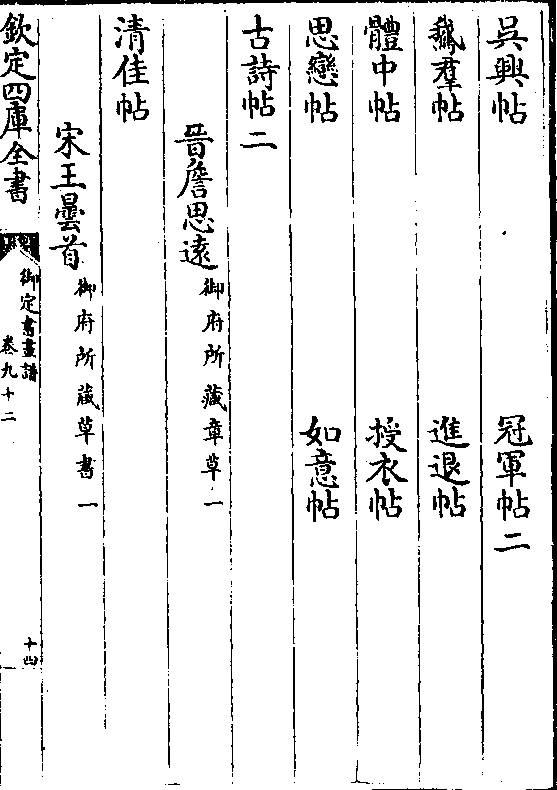 吳興帖　冠軍帖二
鵞羣帖　進退帖
體中帖　授衣帖
思戀帖　如意帖
古詩帖二
晉詹思遠御府所藏章草一
清佳帖
宋王曇首御府所藏草書一
欽定四庫全書　御定書畫譜　卷九十二　十四